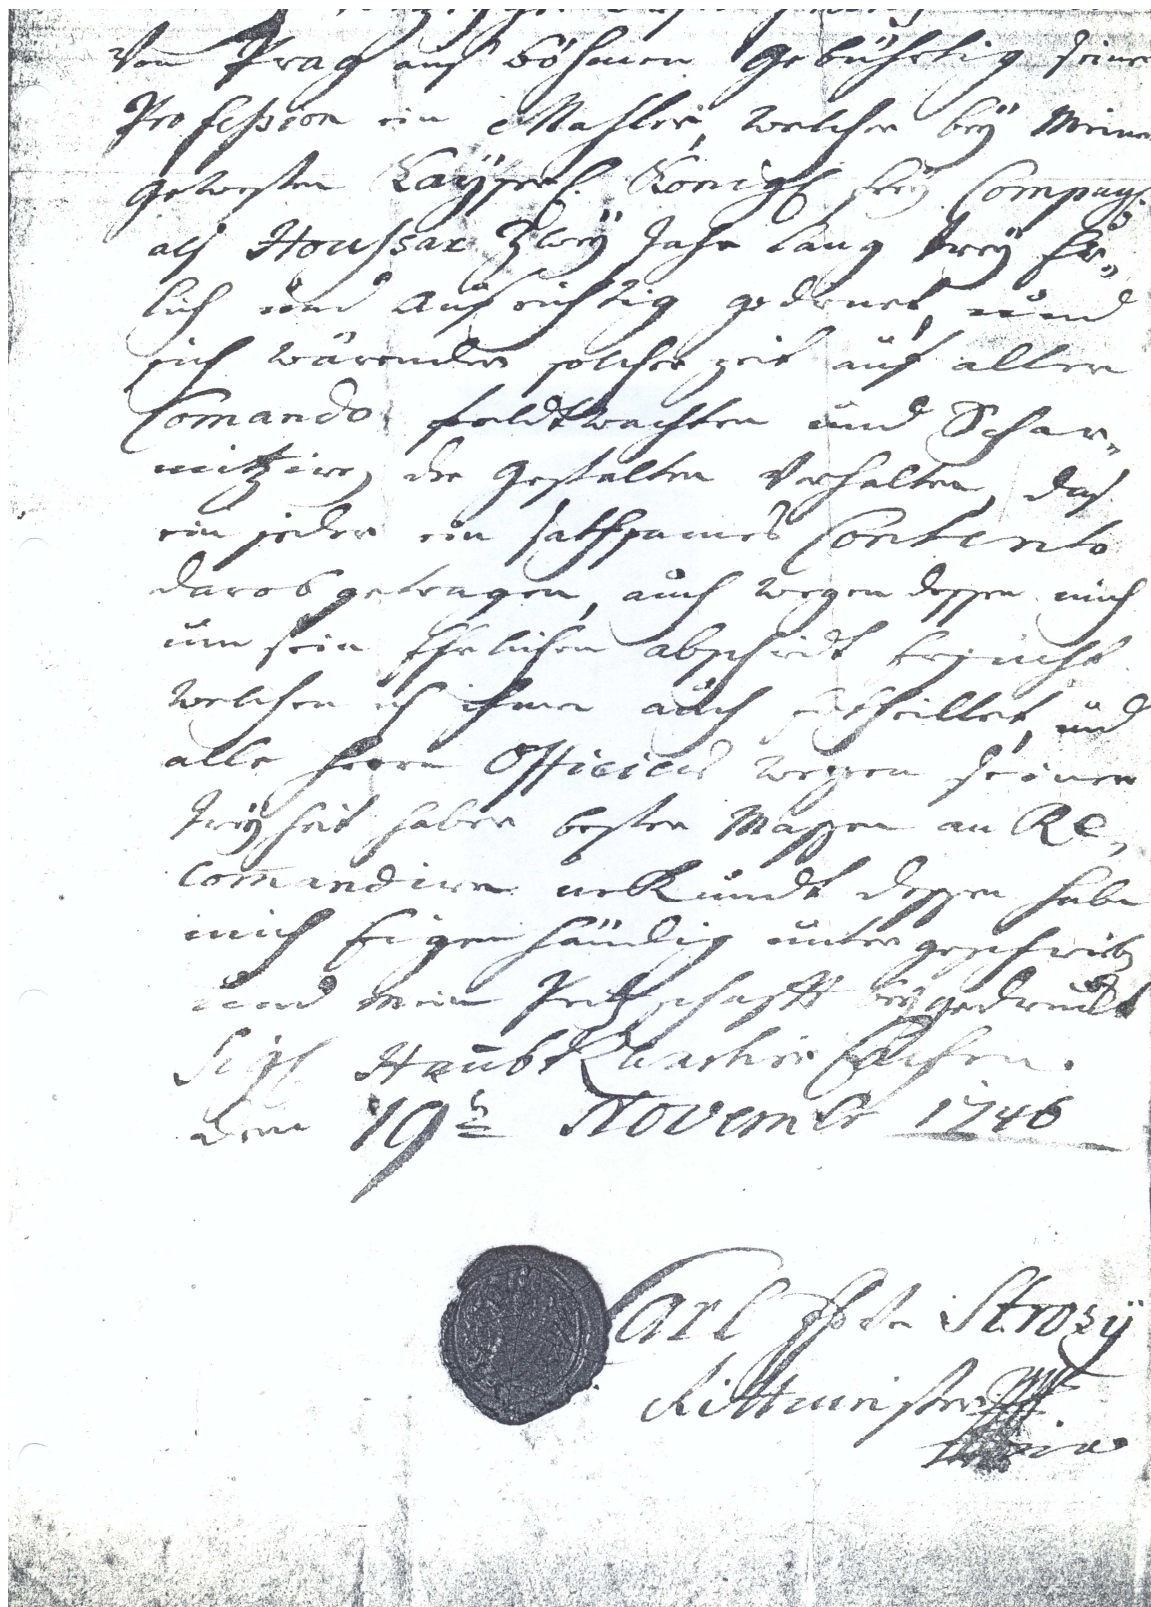 Von Prag aus böhmen gebührtig seiner
Profession ein Mahler, welcher beÿ Meiner
gewesten Kaÿserl. Königl. freÿ Compagn:
als Houssar Zweÿ Jahr lang treÿ Ehr„
lich und Aufrichtig gedienet, und
sich wärender solcher zeit auf allen
Comando feldtwachten und Schar„
mitziren, der gestalten Verhalten, das
ein jeder ein sattsames Contento
darob getragen, auch wegen dessen mich
um sein Ehrlichen abschidt ersucht
welchen ich ihme auch ertheillet, und
alle herrn Officiers wegen seiner
treÿheit haber besten Massen an Re„
comandiren urkundt dessen habe
mich Eigenhändig unter geschrieb
und mein Pettschafft beÿgedruckt
Sigl Haubt Quartier
den 19t November 1746
Carl Strozÿ
Rittmeister